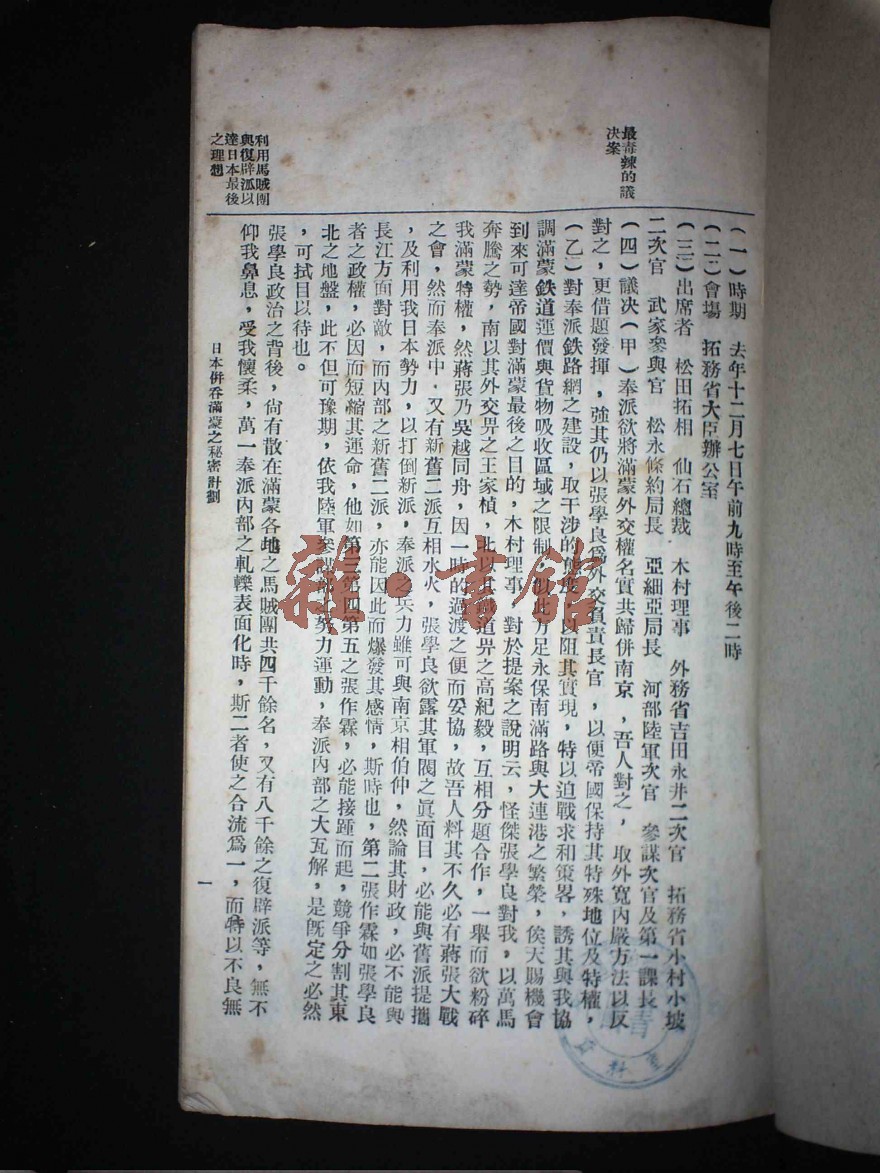 最毒辣的議
決案
(一)時期 去年十二月七日午前九時至午後二時
(二)會塲 拓務省大臣辦公室
(三)出席者 松田拓相 仙石總裁 木村理事 外務省吉田永井二次官 拓務省小村小坡
二次官 武家參與官 松永條約局長 亞細亞局長 河部陸軍次官 參謀次官及第一課長
(四)議決(甲)奉派欲將滿蒙外交權名實共歸併南京,吾人對之,取外寬內嚴方法以反
對之,更借題發揮,強其仍以張學良爲外交負責長官,以便帝國保持其特殊地位及特權,
(乙)對奉派鉄路網之建設,取干涉的態度,以阻其實現,特以迫戰求和策畧,誘其與我協
調滿蒙鉄道運價與貨物吸收區域之限制,似此方足永保南滿路與大連港之繁榮,俟天賜機會
到來可達帝國對滿蒙最後之目的,木村理事,對於提案之說明云,怪傑張學良對我,以萬馬
奔騰之勢,南以其外交界之王家楨,北以其鐵道界之高紀毅,互相分題合作,一舉而欲粉碎
我滿蒙特權,然蔣張乃吳越同舟,因一時的過渡之便而妥協,故吾人料其不久必有蔣張大戰
之會,然而奉派中,又有新舊二派互相水火,張學良欲露其軍閥之眞面目,必能與舊派提攜
,及利用我日本勢力,以打倒新派,奉派之兵力雖可與南京相伯仲,然論其財政,必不能與
長江方面對敵,而內部之新舊二派,亦能因此而爆發其感情,斯時也,第二張作霖如張學良
者之政權,必因而短縮其運命,他如第三第四第五之張作霖,必能接踵而起,競爭分割其東
北之地盤,此不但可豫期,依我陸軍參謀部之努力運動,奉派內部之大瓦解,是旣定之必然
,可拭目以待也。
利用馬賊團
與復辟派以
達日本最後
之理想
張學良政治之背後,尙有散在滿蒙各地之馬賊團共四千餘名,又有八千餘之復辟派等,無不
仰我鼻息,受我懷柔,萬一奉派內部之軋轢表面化時,斯二者使之合流爲一,而特以不良無
日本併吞滿蒙之秘密計劃
一
雜·書館